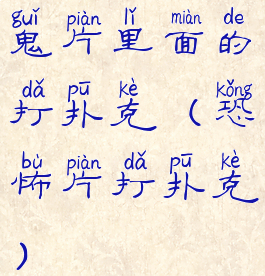 guǐ piàn lǐ miàn de
鬼片里面的
dǎ pū kè kǒng
打扑克（恐
bù piàn dǎ pū kè
怖片打扑克
）